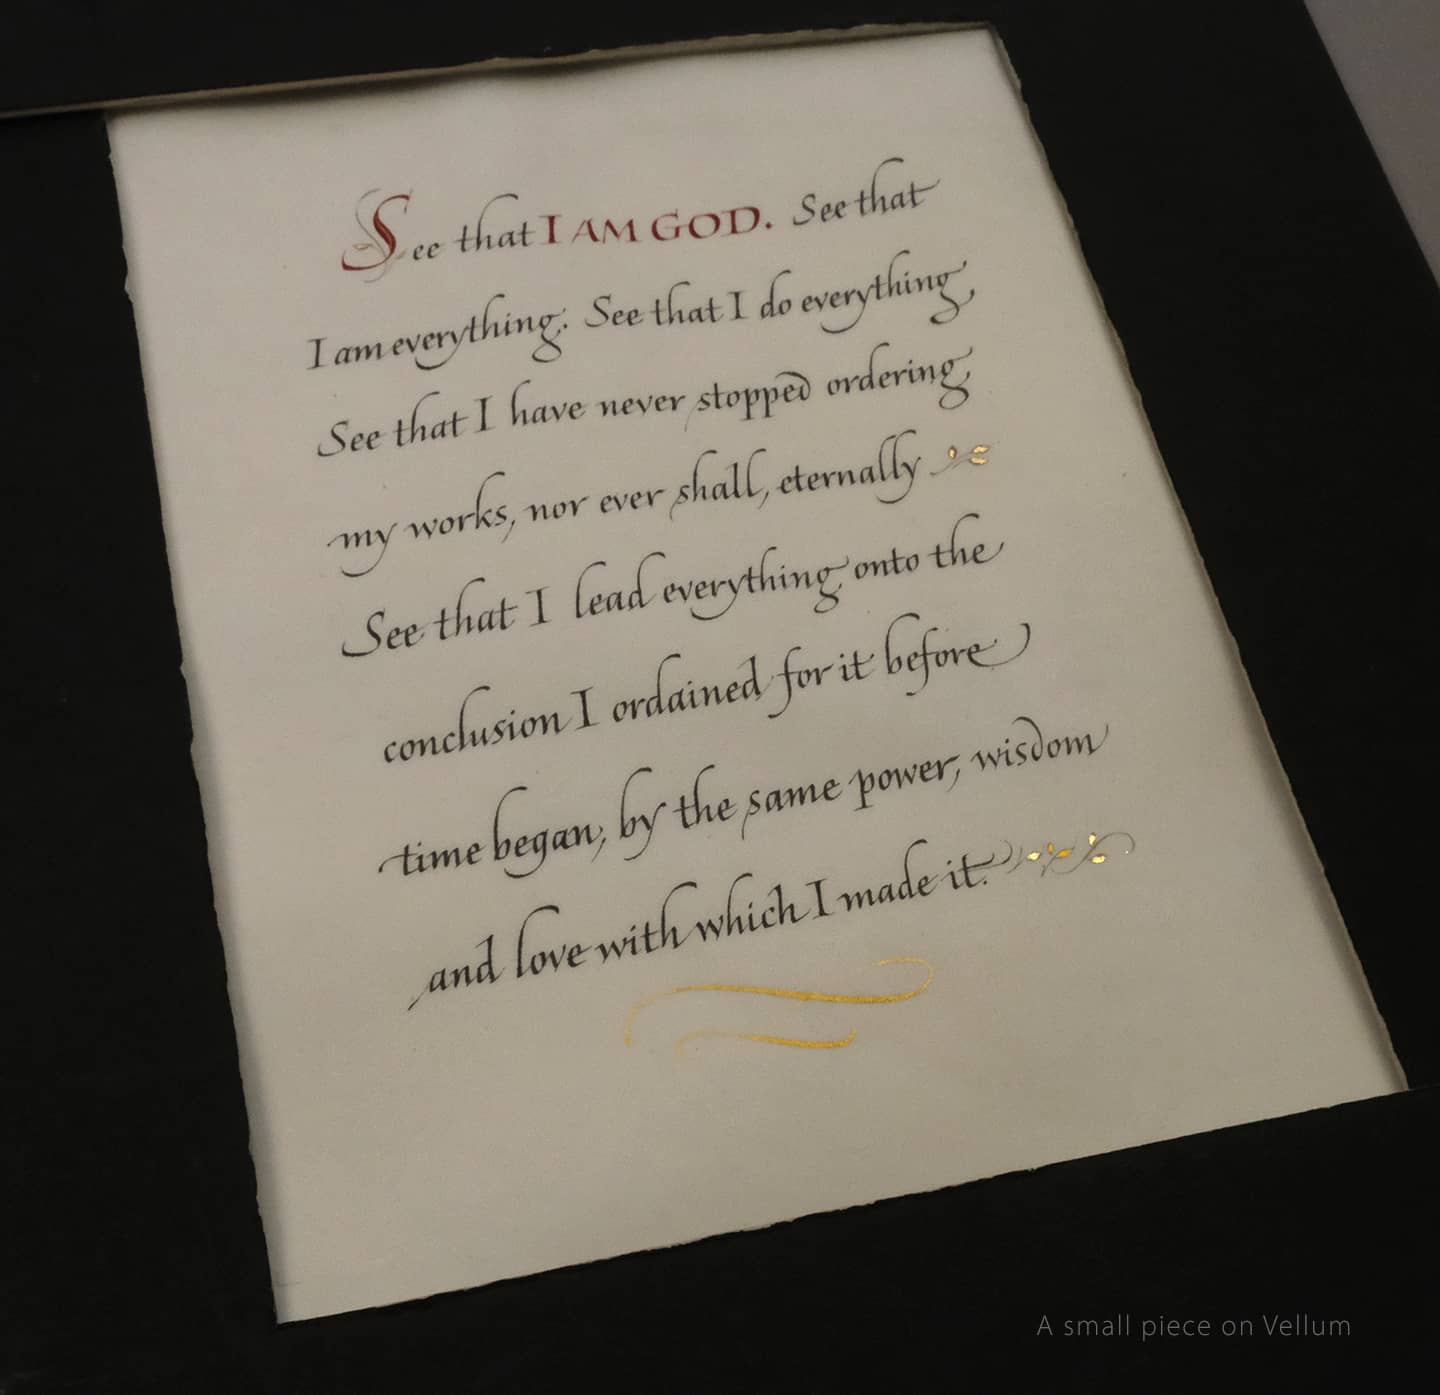 See that I AM GOD. See that
I am everything. See that I do everything
See that I have never stopped ordering
my works, nor ever shall, eternally
See that I lead everything onto the
conclusion I ordained for it before
time began, by the same power, wisdom
and love with which I made it.
A small piece on Vellum